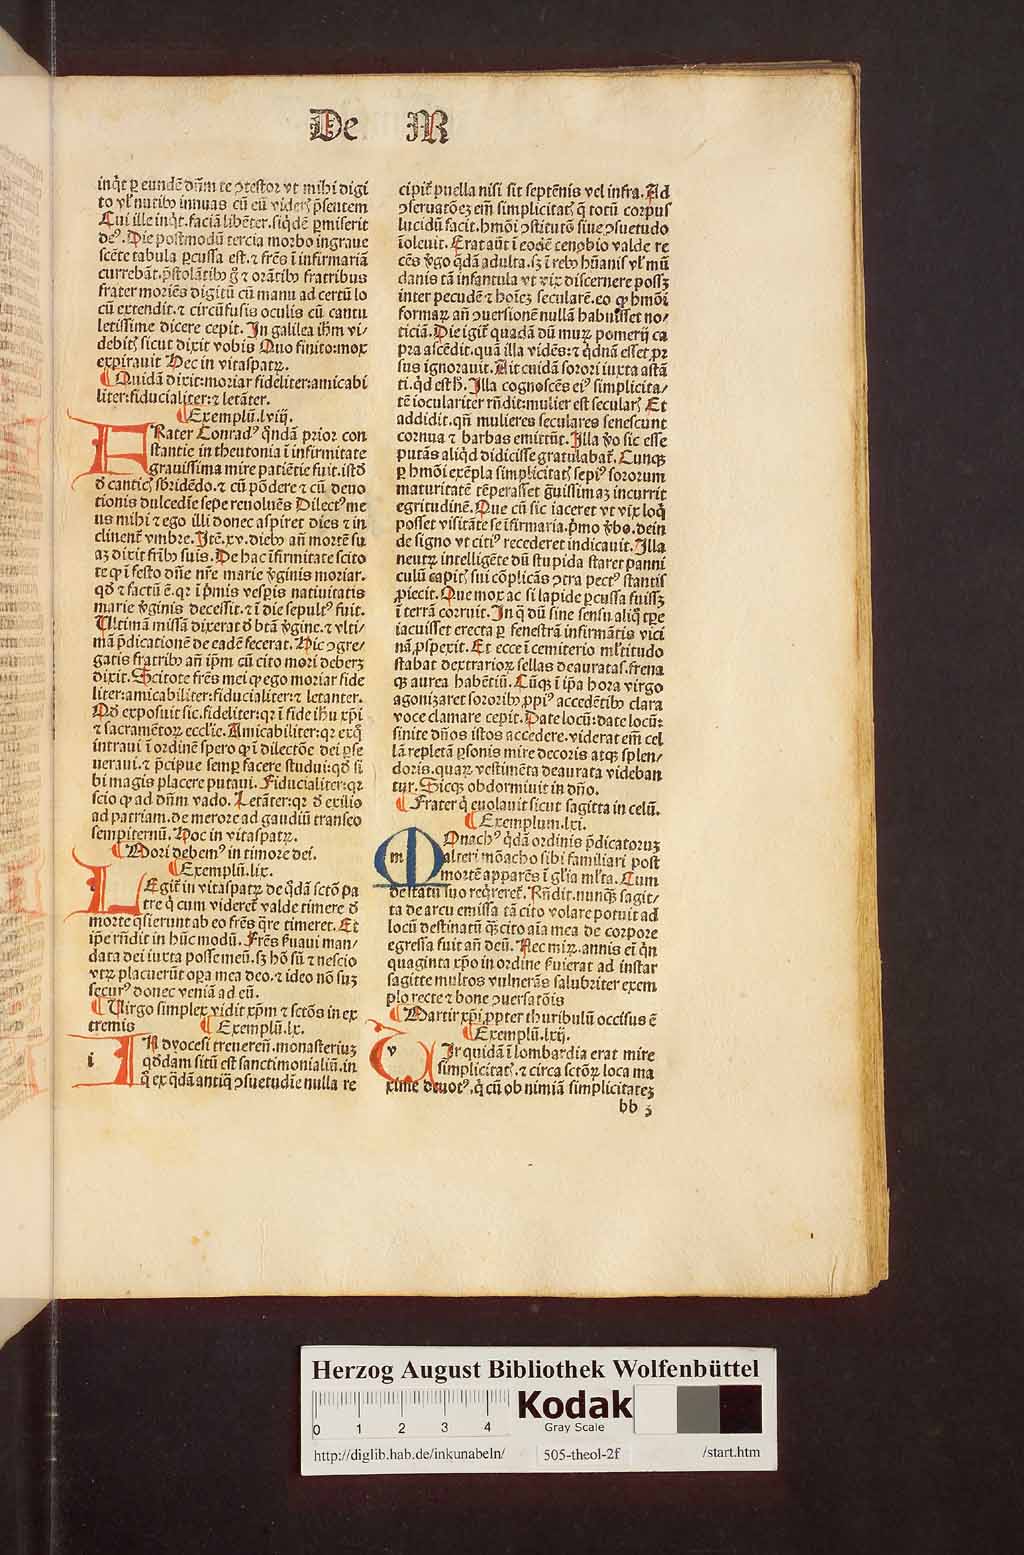 De M
inq̃t ꝑ eundē dñm te ↄtestor vt mihi digi
to vl' nutibꝰ innuas cū eū videris p̄sentem
Cui ille inq̃t. faciā libēter. siq̇dē ꝑmiserit
deꝰ. Die postmodū tercia morbo ingraue
scēte tabula ꝑcussa est. ⁊ frēs ī infirmariā
currebāt. p̄stolātibꝰ g̊ ⁊ orātibꝰ fratribus
frater moriēs digitū cū manu ad certū lo
cū extendit. ⁊ circūfusis oculis cū cantu
letissime dicere cepit. In galilea ihm̄ vi/
debitꝭ sicut dixit vobis Quo finito: mox
expirauit Hec in vitaspatꝝ.
¶ Quidā dixit: moriar fideliter: amicabi
liter: fiducialiter: ⁊ letāter.
¶ Exemplū. lviij.
FRater Conradꝰ q̇ndā prior con
stantie in theutonia ī infirmitate
grauissima mire patiētie fuit. istd̄
d̄ canticꝭ sb̄ridēdo. ⁊ cū pōdere ⁊ cū deuo
tionis dulcedīe sepe reuoluēs Dilectꝰ me
us mihi ⁊ ego illi donec aspiret dies ⁊ in
clinent̃ vmbre. Itē. xv. diebꝰ añ mortē su
aꝫ dixit frībꝰ suis. De hac īfirmitate scito
te ꝙ ī festo dñe nr̄e marie v̄ginis moriar.
qd̄ ⁊ factū ē. qꝛ ī p̄mis vesꝑis natiuitatis
marie v̄ginis decessit. ⁊ ī die sepultꝰ fuit.
Ultimā missā dixerat d̄ btā v̄ginc. ⁊ vlti/
mā p̄dicationē de eadē fecerat. Hic ↄgre/
gatis fratribꝰ añ ip̄m cū cito mori deberꝫ
dixit. Scitote frēs mei ꝙ ego moriar fide
liter: amicabiliter: fiducialiter: ⁊ letanter.
Qd̄ exposuit sic. fideliter: qꝛ ī fide ihū xp̄i
⁊ sacramētoꝝ eccl'ie. Amicabiliter: qꝛ exq̇
intraui ī ordinē spero ꝙ ī dilectōe dei ꝑse
ueraui. ⁊ p̄cipue semꝑ facere studui: qd̄ si
bi magis placere putaui. Fiducialiter: qꝛ
scio ꝙ ad dñm vado. Letāter: qꝛ d̄ exilio
ad patriam. de merore ad gaudiū transeo
sempiternū. Hoc in vitaspatꝝ.
¶ Mori debemꝰ in timore dei.
¶ Exemplū. lix.
LEgit̃ in vitaspatꝝ de q̇dā sctō pa
tre q̇ cum videret̃ valde timere d̄
morte q̄sierunt ab eo frēs q̄re timeret. Et
ip̄e rñdit in hūc modū. Frēs ẜuaui man/
data dei iuxta posse meū. sꝫ hō sū ⁊ nescio
vtꝝ placuerūt oꝑa mea deo. ⁊ ideo nō suꝫ
securꝰ donec veniā ad eū.
¶ Uirgo simplex vidit xp̄m ⁊ sctōs in ex
tremis ¶ Exemplū. lx.
i
IN dyocesi treuereñ. monasteriuꝫ
qd̄dam sitū est sanctimonialiū. in
q̊ ex q̇dā antiq̄ ↄsuetudīe nulla re
cipit̃ puella nisi sit septēnis vel infra. Ad
ↄseruatōeꝫ eīm simplicitatꝭ q̄ totū corpus
lucidū facit. hmōi ↄstitutō siue ↄsuetudo
īoleuit. Erat aūt ī eodē cenobio valde re
cēs v̄go q̇dā adulta. sꝫ ī rebꝰ hūanis vl' mū
danis tā infantula vt vix discernere possꝫ
inter pecudē ⁊ hoīeꝫ secularē. eo ꝙ hmōi
formaꝝ añ ↄuersionē nullā habuisset no/
ticiā. Die igit̃ quadā dū muꝝ pomerij ca
pra ascēdit. quā illa vidēs: ⁊ q̇dnā esset, pꝛ
sus ignorauit. Ait cuidā sorori iuxta astā
ti. q̇d est h̄. Illa cognoscēs eiꝰ simplicita/
tē ioculariter rñdit: mulier est secularꝭ Et
addidit. qñ mulieres seculares senescunt
cornua ⁊ barbas emittūt. Illa v̄o sic esse
putās aliq̇d didicisse gratulabat̃. Cunqꝫ
ꝑ hmōi exēpla simplicitatꝭ sepiꝰ sororum
maturitatē tēꝑasset g̃uissimaꝫ incurrit
egritudinē. Que cū sic iaceret vt vix loq̇
posset visitāte se īfirmaria. p̄mo v̄bo. dein
de signo vt citiꝰ recederet indicauit. Illa
neutꝝ intelligēte dū stupida staret panni
culū capitꝭ sui cōplicās ↄtra pectꝰ stantis
ꝓiecit. Que mox ac si lapide ꝑcussa fuissꝫ
ī terrā corruit. In q̊ dū sine sensu aliq̊ tꝑe
iacuisset erecta ꝑ fenestrā infirmātis vici
nā, ꝓspexit. Et ecce ī cemiterio ml'titudo
stabat dextrarioꝝ sellas deauratas. frena
qꝫ aurea habētiū. Cūqꝫ ī ip̄a hora virgo
agonizaret sororibꝰ, ꝓpiꝰ accedētibꝰ clara
voce clamare cepit. Date locū: date locū:
sinite dños istos accedere. viderat em̄ cel
lā repletā ꝑsonis mire decoris atqꝫ splen/
doris. quaꝝ vestimēta deaurata videban
tur. Sicqꝫ obdormiuit in dño.
¶ Frater q̇ euolauit sicut sagitta in celū.
¶ Exemplum. lxi.
m
MOnachꝰ q̇dā ordinis p̄dicatoruꝫ
alteri mōacho sibi familiari post
mortē apparēs ī gl'ia ml'ta. Cum
de statu suo req̇reret̃. Rñdit. nunqꝫ sagit/
ta de arcu emissa tā cito volare potuit ad
locū destinatū qꝫ cito aīa mea de corpore
egressa fuit añ deū. Nec miꝝ. annis eī q̇n
quaginta xp̄o in ordine ẜuierat ad instar
sagitte multos vulnerās salubriter exem
plo recte ⁊ bone ↄuersatōis
¶ Martir xp̄i, ꝓpter thuribulū occisus ē
¶ Exemplū. lxij.
v
UIr quidā ī lombardia erat mire
simplicitatꝭ. ⁊ circa sctōꝝ loca ma
xime deuotꝰ. q̇ cū ob nimiā simplicitateꝫ
bb 3
Herzog August Bibliothek Wolfenbüttel
0 1 2 3 4
Kodak
Gray Scale
http://diglib.hab.de/inkunabeln/ 505-theol-2f /start.htm